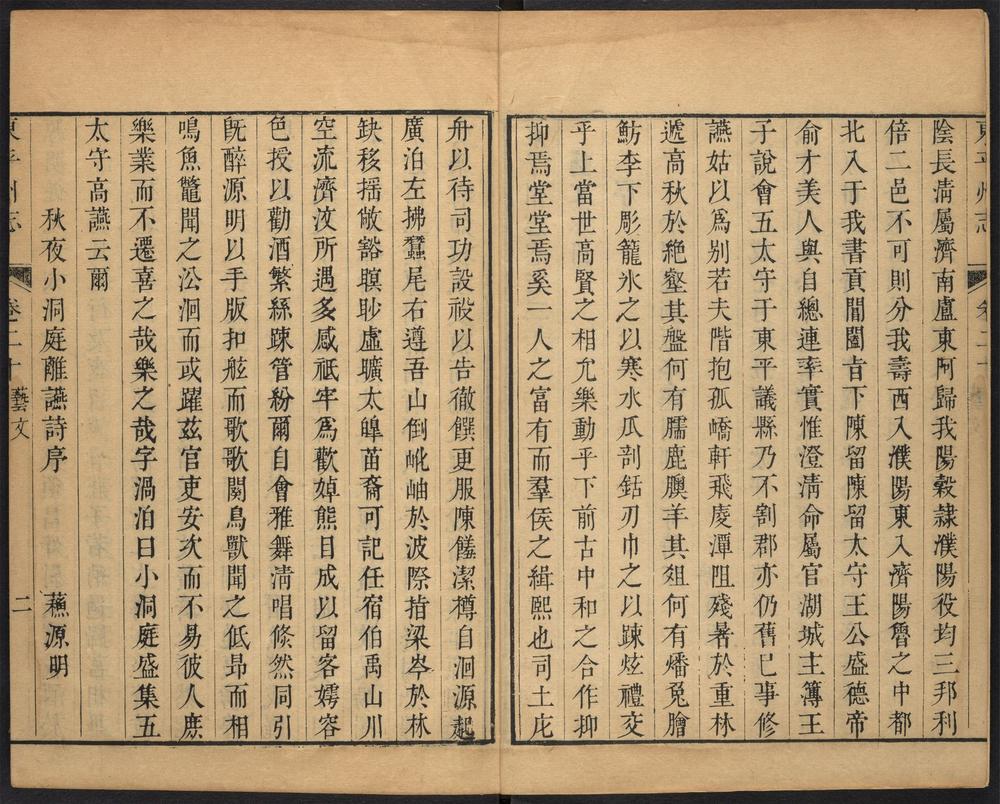 東平州志
卷二十
陰長淸屬濟南盧東阿歸我陽榖隷濮陽役均三邦利
倍二邑不可則分我壽西入濮陽東入濟陽魯之中都
北入于我書貢閶闔旹下陳留陳留太守王公盛德帝
俞才美人與自總連率實惟澄淸命屬官湖城主簿王
子說會五太守于東平議縣乃不割郡亦仍舊已事修
讌姑以爲别若夫階抱孤嶠軒飛慶潭阻殘暑於重林
遞高秋於絶壑其盤何有臑鹿腝羊其俎何有燔兔膾
魴李下彫籠氷之以寒水瓜剖銛刃巾之以踈炫禮交
乎上當世高賢之相允樂動乎下前古中和之合作抑
抑焉堂堂焉奚一人之富有而羣侯之緝熙也司土庀
舟以待司功設祋以告徹饌更服陳饈潔樽自洄源起
廣泊左拂蠶尾右遵吾山倒岮岫於波際㨖梁岑於林
缺移搖敞豁瞑眇虛曠太皥苗裔可記任宿伯禹山川
空流濟汶所遇多感祗牢爲歡婥熊目成以留客嫮容
色授以勸酒繁絲踈管紛爾自會雅舞淸唱倐然同引
旣醉源明以手版扣舷而歌歌闋鳥獸聞之低昂而相
鳴魚鼈聞之沿洄而或躍兹官吏安次而不易彼人庶
樂業而不遷喜之哉樂之哉字渦泊曰小洞庭盛集五
太守高讌云爾
秋夜小洞庭離讌詩序 蘓源明
東平州志
卷二十 藝文 二